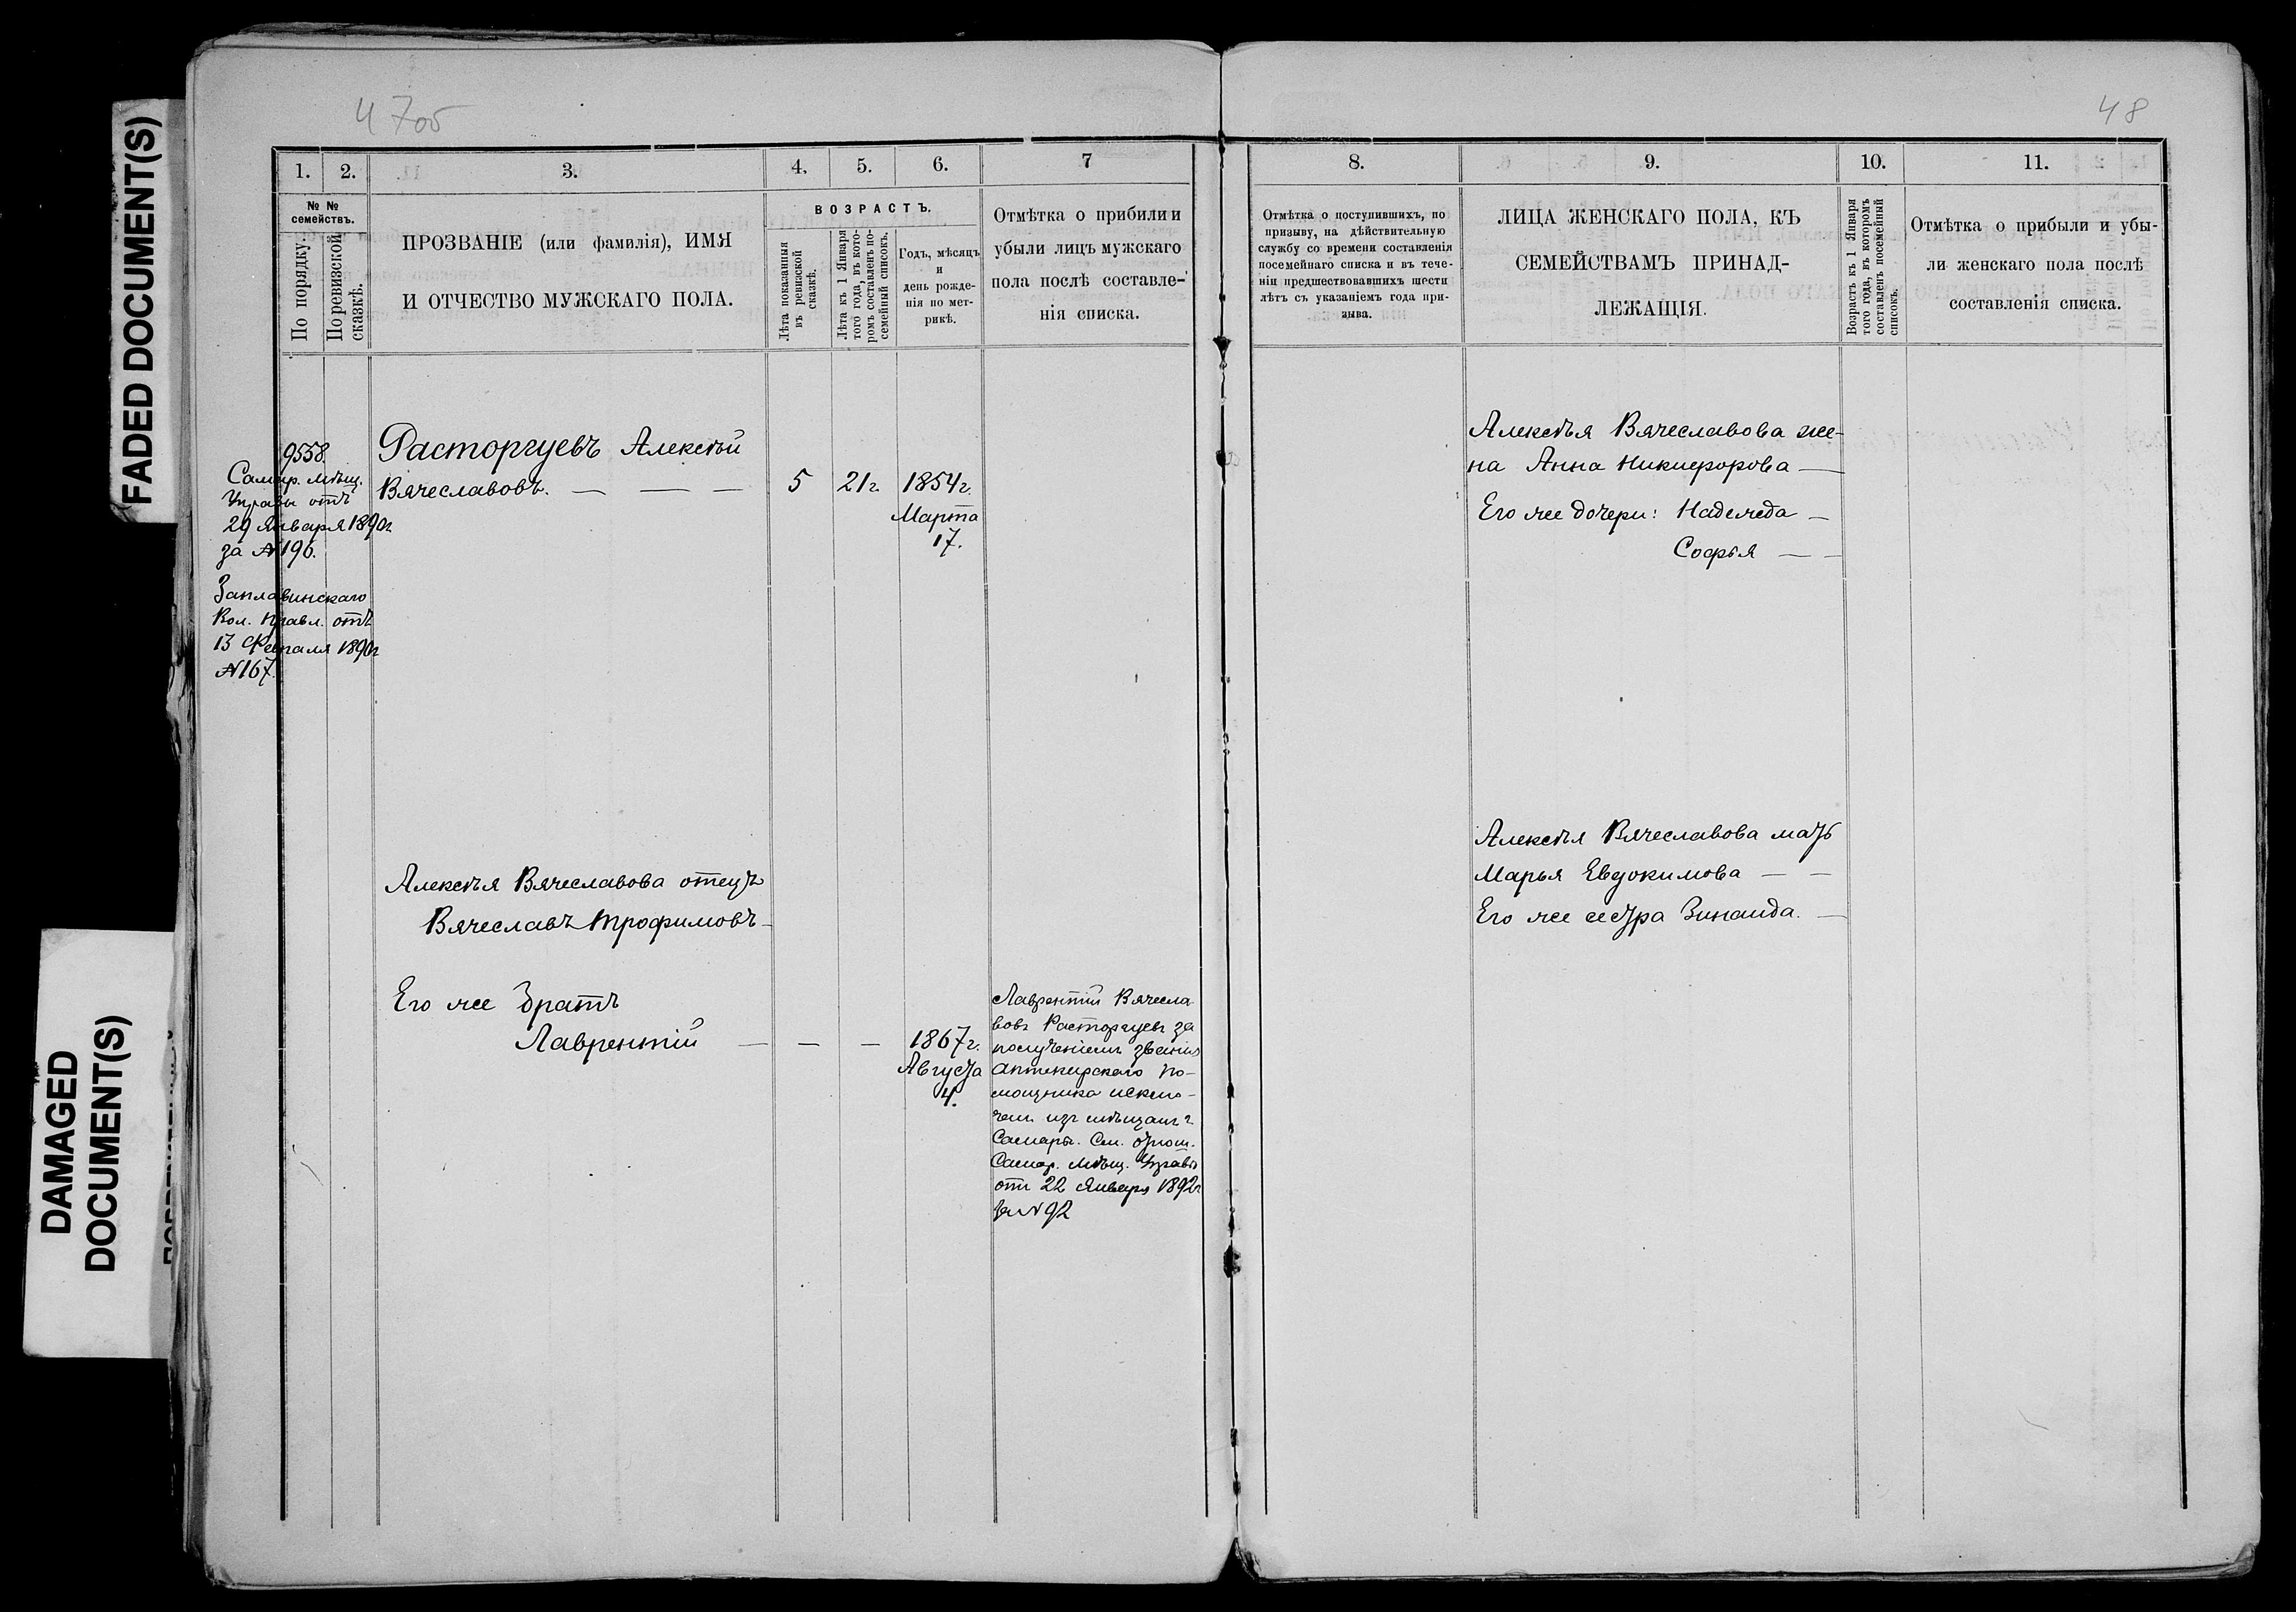 FADED DOCUMENT(S)
DAMAGED
DOCUMENT(S)
48
1. 2. 3. 4. 5. 6. 7
№ №
семействъ.
По порядку.
По ревизской
сказкѣ.
ПРОЗВАНІЕ (или фамилія), ИМЯ
И ОТЧЕСТВО МУЖСКАГО ПОЛА.
ВОЗРАСТЪ.
Лѣта показанныя
въ ревизской
сказкѣ.
Лѣта къ 1 Января
того года, въ кото-
ромъ составленъ по-
семейный списокъ.
Годъ, мѣсяцъ
и
день рожде-
нія по мет-
рикѣ.
Отмѣтка о прибыли и
убыли лицъ мужскаго
пола послѣ составле-
нія списка.
9558
Самар. Мѣщ.
Управы отъ
29 Января 1890г.
за №196.
Заплавинскаго
Вол. Правл. отъ
13 Февраля 1890г
№167.
Расторгуевъ Алексѣй
Вячеславовъ. — — —
5 21г. 1854г.
Марта
17.
Алексѣя Вячеславова отецъ
Вячеславъ Трофимовъ —
Его же братъ
Лаврентій — — —
1867г.
Августа
4.
Лаврентій Вячесла-
вовъ Расторгуевъ за
полученіемъ званія
Аптекарскаго по-
мощника исклю-
чен. изъ мѣщанъ г.
Самары. См. отнош.
Самар. Мѣщ. Управы
отъ 22 Января 1892г
за №92
8. 9. 10. 11.
Отмѣтка о поступившихъ, по
призыву, на дѣйствительную
службу со времени составленія
посемейнаго списка и въ тече-
ніи предшествовавшихъ шести
лѣтъ съ указаніемъ года при-
зыва.
ЛИЦА ЖЕНСКАГО ПОЛА, КЪ
СЕМЕЙСТВАМЪ ПРИНАД-
ЛЕЖАЩІЯ.
Возрастъ къ 1 Января
того года, въ которомъ
составленъ посемейный
списокъ.
Отмѣтка о прибыли и убы-
ли женскаго пола послѣ
составленія списка.
Алексѣя Вячеславова же-
на Анна Никифорова —
Его же дочери: Надежда —
Софья — —
Алексѣя Вячеславова мать
Марья Евдокимова — —
Его же сестра Зинаида. —